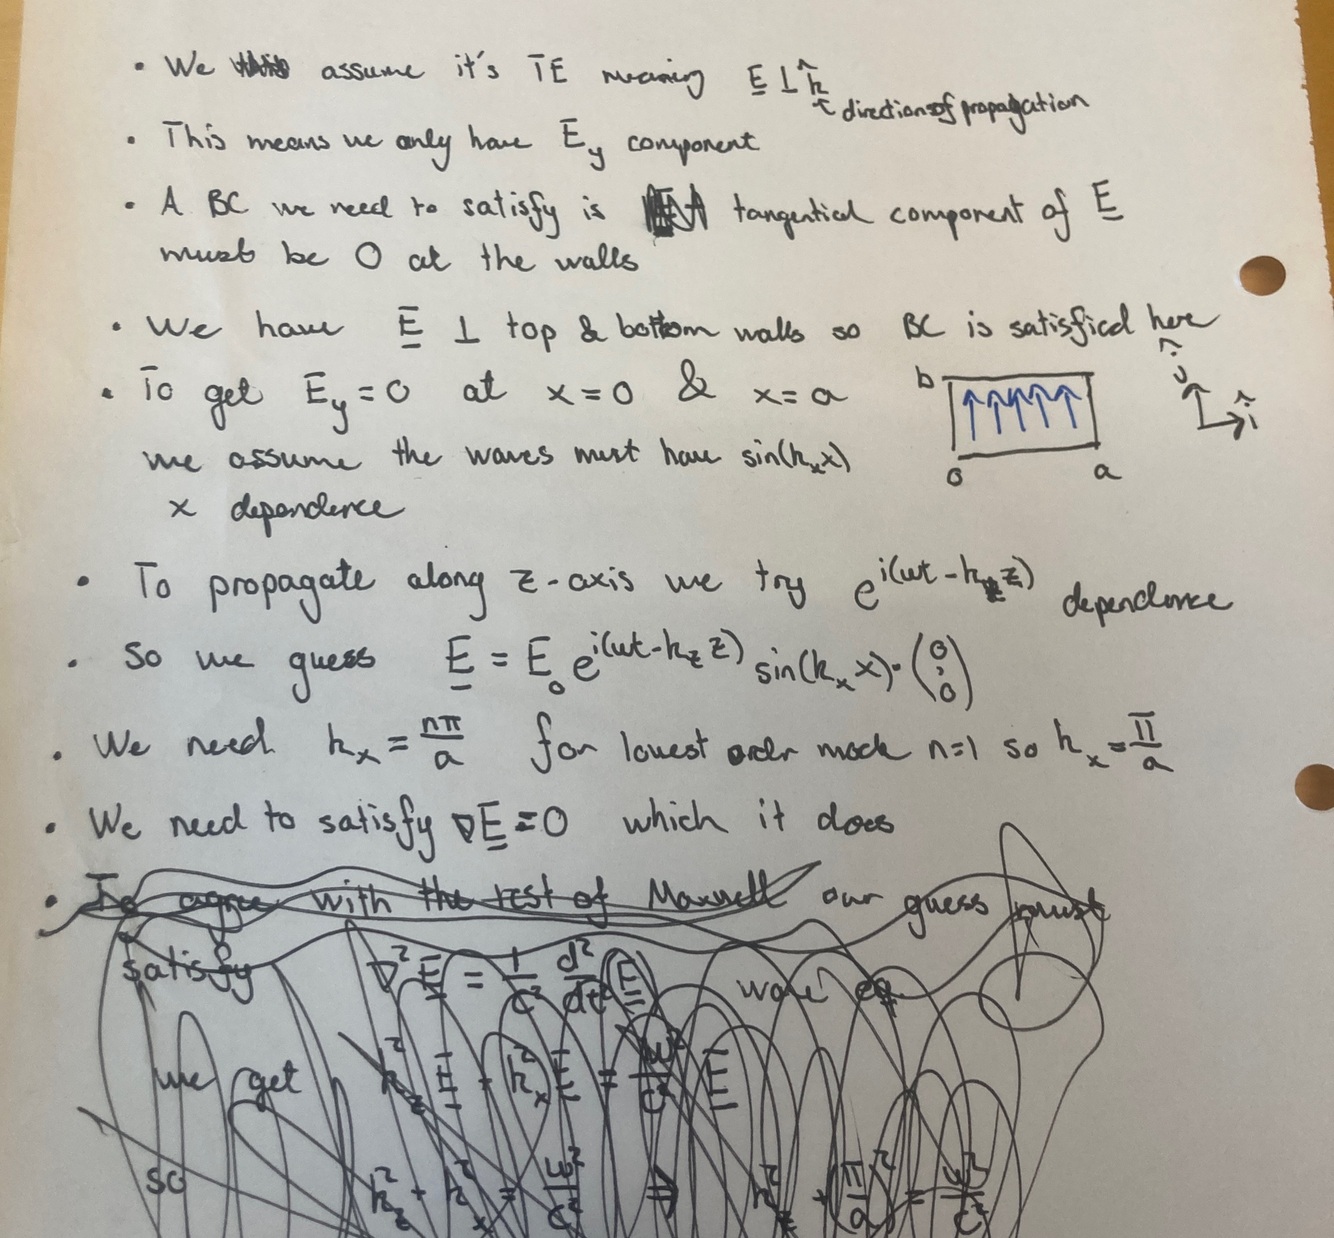 • We assume it's TE meaning E ⊥ k̂
↑ direction of propagation
• This means we only have E_y component
• A BC we need to satisfy is tangential component of E
must be 0 at the walls
• We have E ⊥ top & bottom walls so BC is satisfied here
• To get E_y = 0 at x = 0 & x = a
we assume the waves must have sin(k_x x)
x dependence
b
0
a
ĵ
î
• To propagate along z-axis we try e^{i(ωt - k_z z)} dependence
• So we guess E = E_0 e^{i(ωt - k_z z)} sin(k_x x) · (0 1 0)
• We need k_x = nπ/a for lowest order mode n=1 so k_x = π/a
• We need to satisfy ∇E = 0 which it does
• To agree with the rest of Maxwell our guess must
satisfy ∇² E = 1/c² d²/dt² (E) wave eq
we get k_z² E + k_x² E = ω²/c² E
so k_z² + k_x² = ω²/c² ⇒ k_z² + (π/a)² = ω²/c²